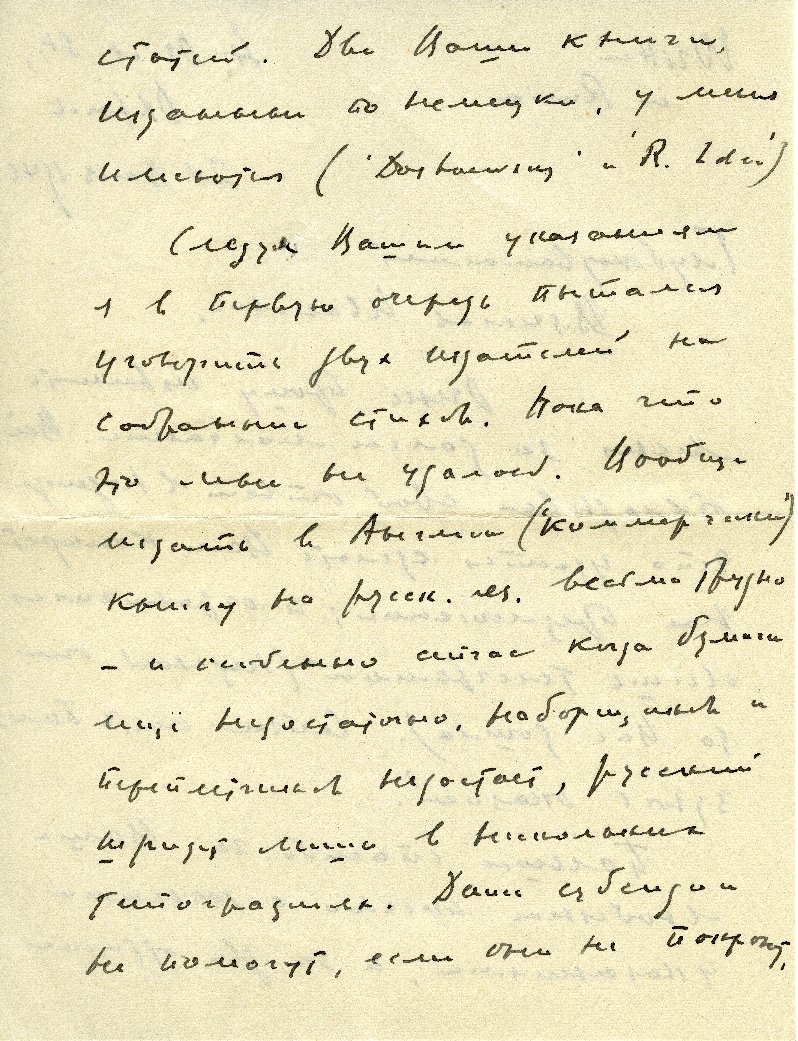 статей. Две Ваши книги,
изданныи по немецки, у меня
имеются ('Dostoewskij' и 'R. Idee')
Следуя Вашим указаниям
я в первую очередь пытался
уговорить двух издателей на
собрание стихов. Пока что
это мне не удалось. Вообще
издать в Англии (коммерчески)
книгу на русск. яз. весьма трудно
– и особенно сейчас когда бумаги
ещё недостаточно, наборщиков и
переплетчиков недостает, русский
шрифт лишь в нескольких
типографиях. Даже субсидии
не помогут, если они не покроют,